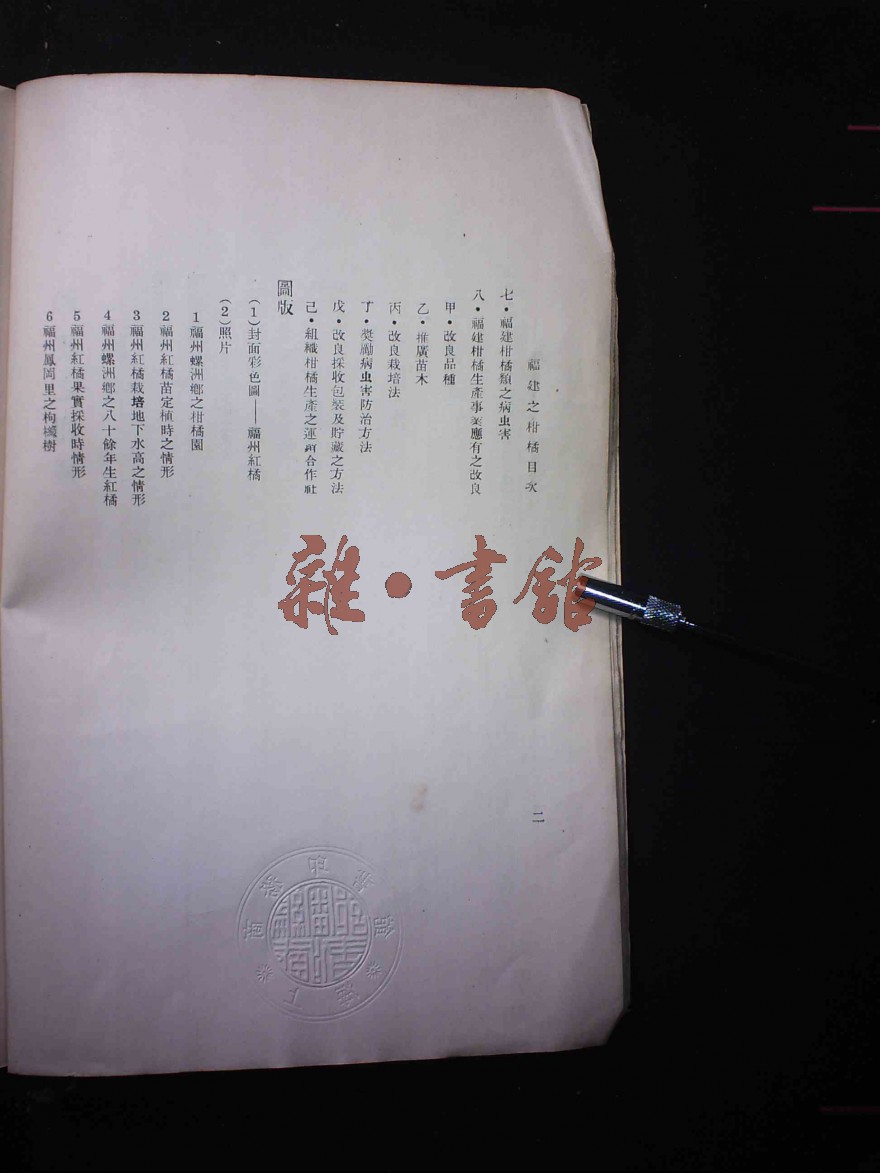 福建之柑橘目次
七・福建柑橘類之病虫害
八・福建柑橘生產事業應有之改良
甲・改良品種
乙・推廣苗木
丙・改良栽培法
丁・獎勵病虫害防治方法
戊・改良採收包裝及貯藏之方法
己・組織柑橘生產之運銷合作社
圖版
(1)封面彩色圖——福州紅橘
(2)照片
1福州螺洲鄉之柑橘園
2福州紅橘苗定植時之情形
3福州紅橘栽培地下水高之情形
4福州螺洲鄉之八十餘年生紅橘
5福州紅橘果實採收時情形
6福州鳳岡里之枸櫞樹
二
雜・書館